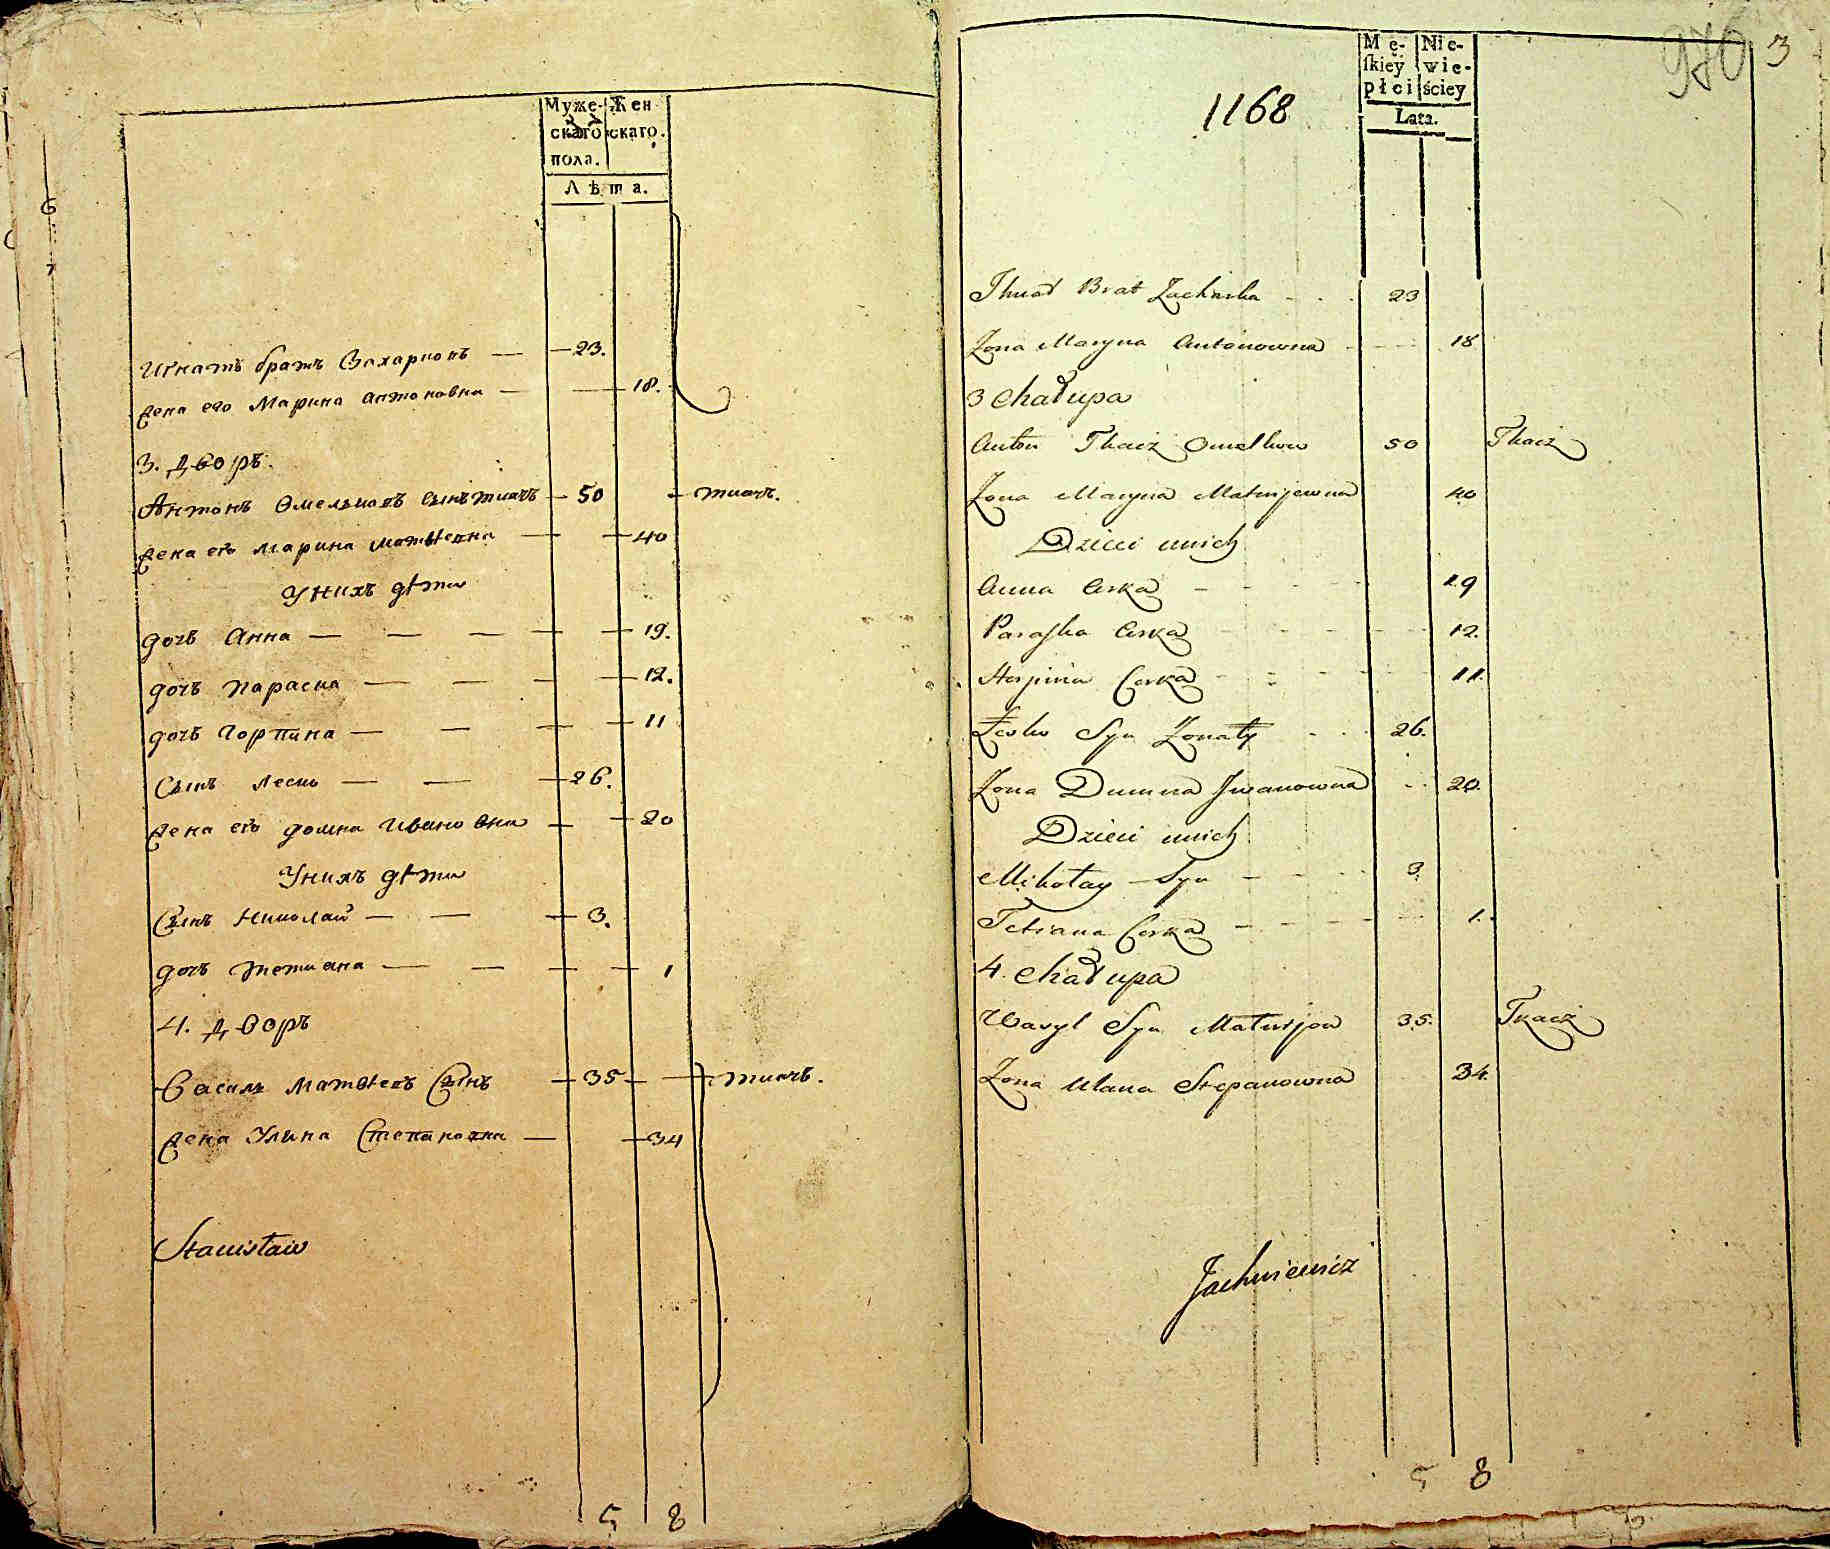 Муже- Жен
скаго скаго.
пола.
Лѣта.
Игнатъ братъ Захарковъ — 23.
Жена его Марина Антоновна — 18.
3. дворъ.
Антонъ Омельковъ сынъ ткачъ — 50 — ткачъ.
Жена его Марина Матвѣевна — 40
Унихъ дѣти
дочь Анна — — — 19.
дочь Параска — — — 12.
дочь Горпина — — — 11
Сынъ Леско — — 26.
Жена его домна Ивановна — 20
Унихъ дѣти
Сынъ Николай — — 3.
дочь Тетиана — — — 1
4. дворъ
Василь Матвѣевъ Сынъ — 35 — ткачъ.
Жена Улина Степановна — 34
Stanisław
5 8
976 3
Mę- Nie-
ſkiey wie-
płci ściey
Lata.
1168
Ihnat Brat Zacharka 23
Żona Maryna Antonowna 18
3 Chałupa
Anton Tkacz Omelkow 50 Tkacz
Żona Maryna Matwijewna 40
Dzieci unich
Anna Corka 19
Paraſka Corka 12.
Horpina Corka 11.
Lesko Syn Żonaty 26.
Żona Dumna Jwanowna 20.
Dzieci unich
Mikołay Syn 3
Tetiana Corka 1.
4. Chałupa
Wasyl Syn Matwijow 35. Tkacz
Żona Ulana Stepanowna 34.
Jachniewicz
5 8